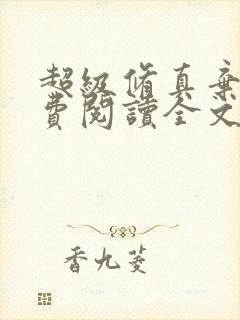 超級脩真棄
費閱讀全文
香九菱